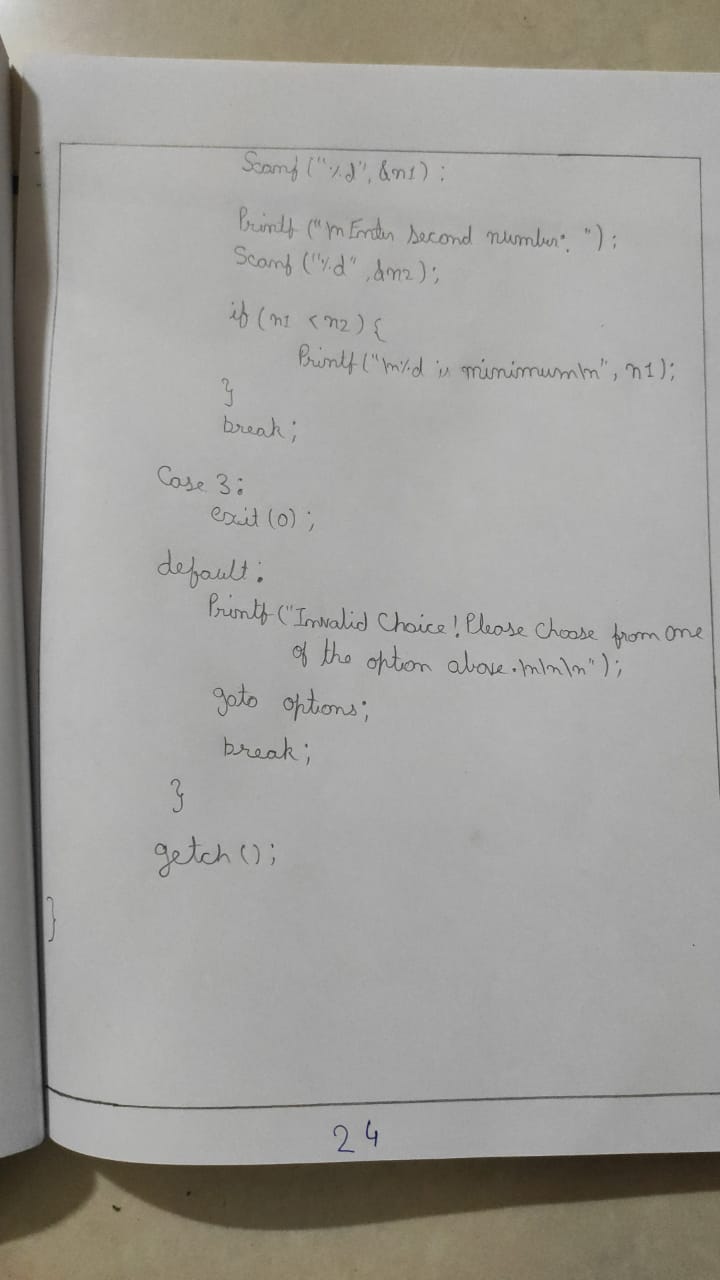 Scanf ("%d", &n1);
Printf ("\nEnter second number: ");
Scanf ("%d", &n2);
if (n1 < n2) {
Printf ("\n%d is minimum\n", n1);
}
break;
Case 3:
exit (0);
default:
Printf ("Invalid Choice! Please Choose from one
of the option above.\n\n\n");
goto options;
break;
}
getch ();
}
24